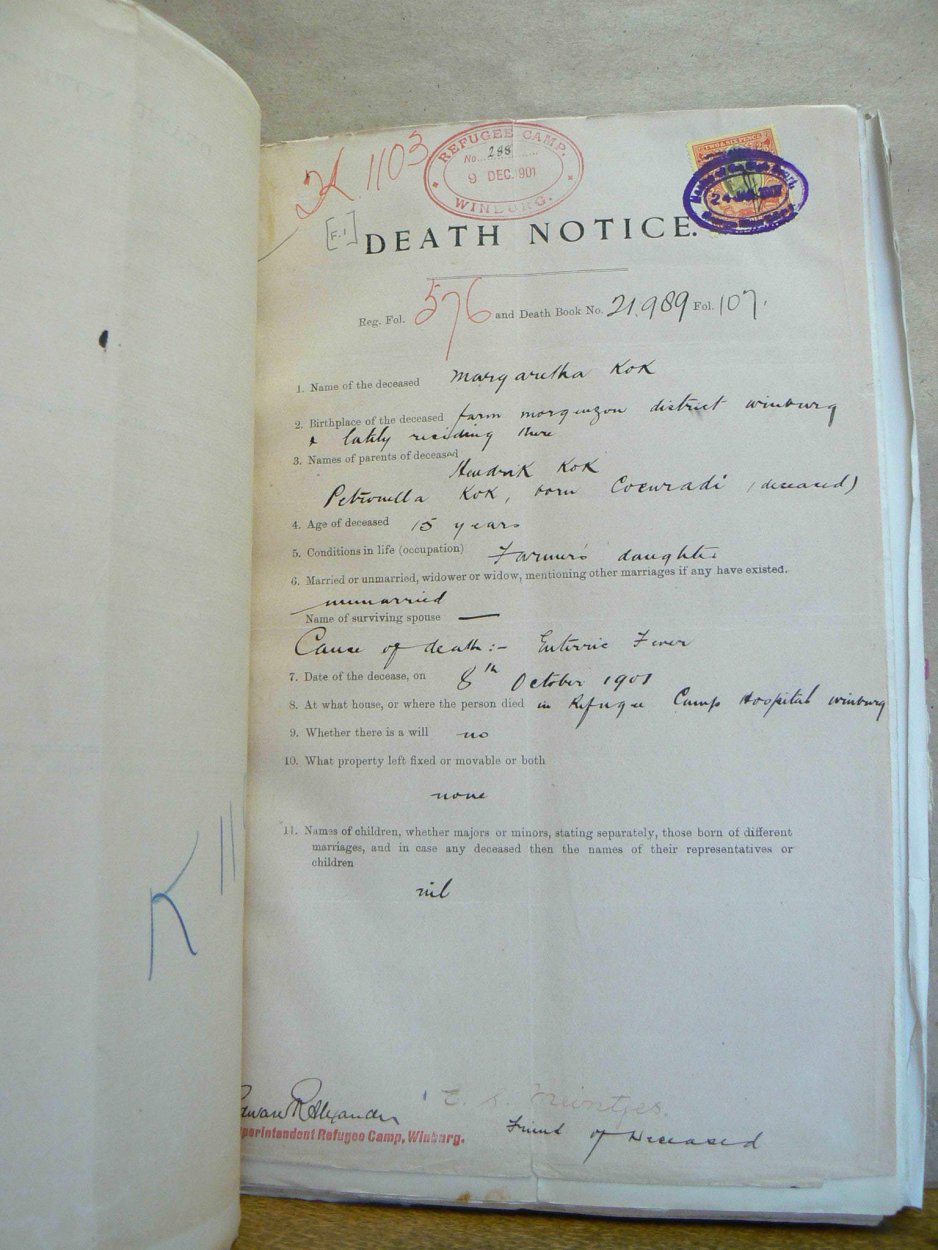 K 1103
REFUGEE CAMP,
No. 288
9 DEC. 1901
WINBURG.
TWO & SIX PENCE
[F.1]
DEATH NOTICE.
Reg. Fol. 576 and Death Book No. 21.989 Fol. 107.
1. Name of the deceased Margaretha Kok
2. Birthplace of the deceased farm morgenzon district winburg
& lately residing there
3. Names of parents of deceased
Hendrik Kok
Petronella Kok, born Coenradi (deceased)
4. Age of deceased 15 years
5. Conditions in life (occupation) Farmer's daughter
6. Married or unmarried, widower or widow, mentioning other marriages if any have existed.
unmarried
Name of surviving spouse —
Cause of death:- Enterric Fever
7. Date of the decease, on 8th October 1901
8. At what house, or where the person died in Refugee Camp Hospital winburg
9. Whether there is a will no
10. What property left fixed or movable or both
none
11. Names of children, whether majors or minors, stating separately, those born of different
marriages, and in case any deceased then the names of their representatives or
children
nil
K 11
R Alexander
perintendent Refugee Camp, Winburg.
Friend of Deceased